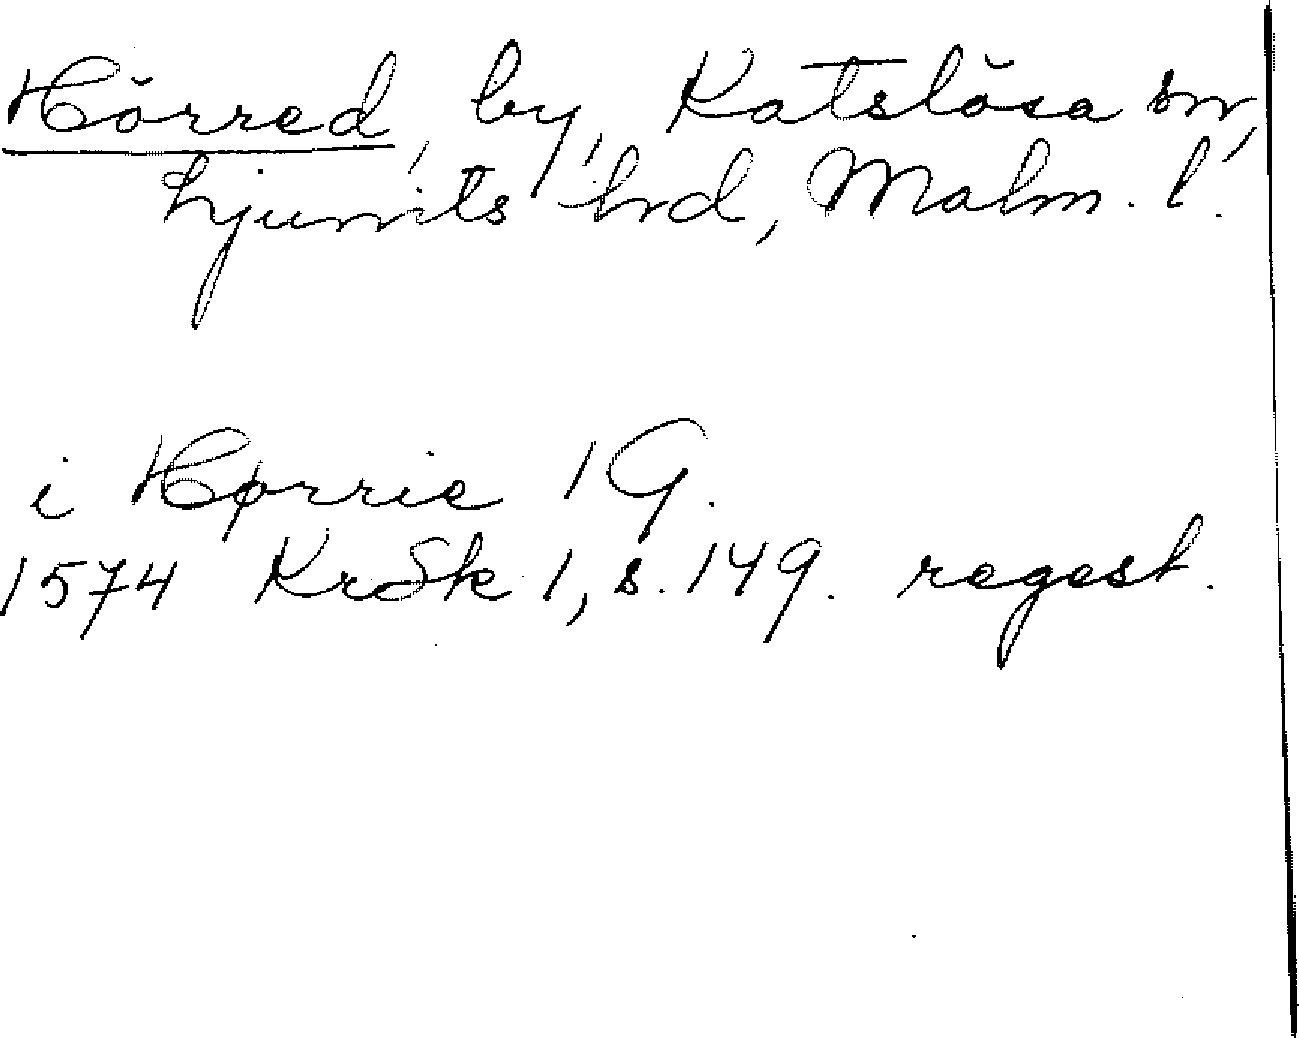 Hörred, by, Katslösa sn,
Ljunits hrd, Malm. l.
i Hørrie 1 G.
1574 KrSk 1, s. 149. regest.